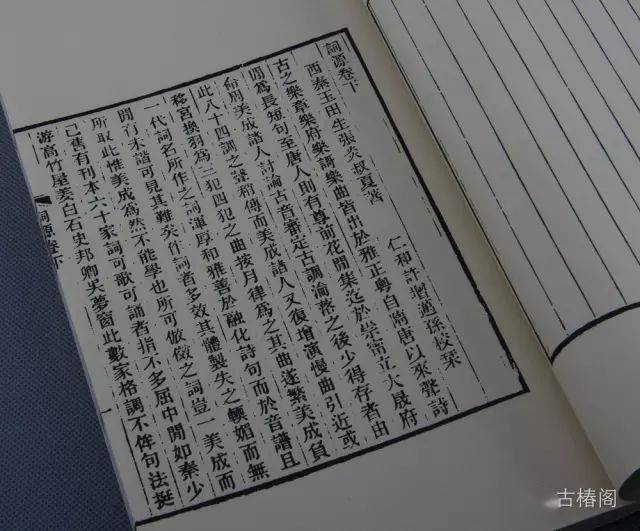 詞源卷下
西秦玉田生張炎叔夏著
仁和許增邁孫校栞
古之樂章樂府樂歌樂曲皆出於雅正粵自隋唐以來聲詩
閒爲長短句至唐人則有尊前花閒集迄於崇甯立大晟府
命周美成諸人討論古音審定古調淪落之後少得存者由
此八十四調之聲稍傳而美成諸人又復增演慢曲引近或
移宮換羽爲三犯四犯之曲按月律爲之其曲遂繁美成負
一代詞名所作之詞渾厚和雅善於融化詩句而於音譜且
閒有未諧可見其難矣作詞者多效其體製失之輭媚而無
所取此惟美成爲然不能學也所可倣傚之詞豈一美成而
已舊有刊本六十家詞可歌可誦者指不多屈中閒如秦少
游高竹屋姜白石史邦卿吳夢窗此數家格調不侔句法挺
詞源卷下
一
古椿阁